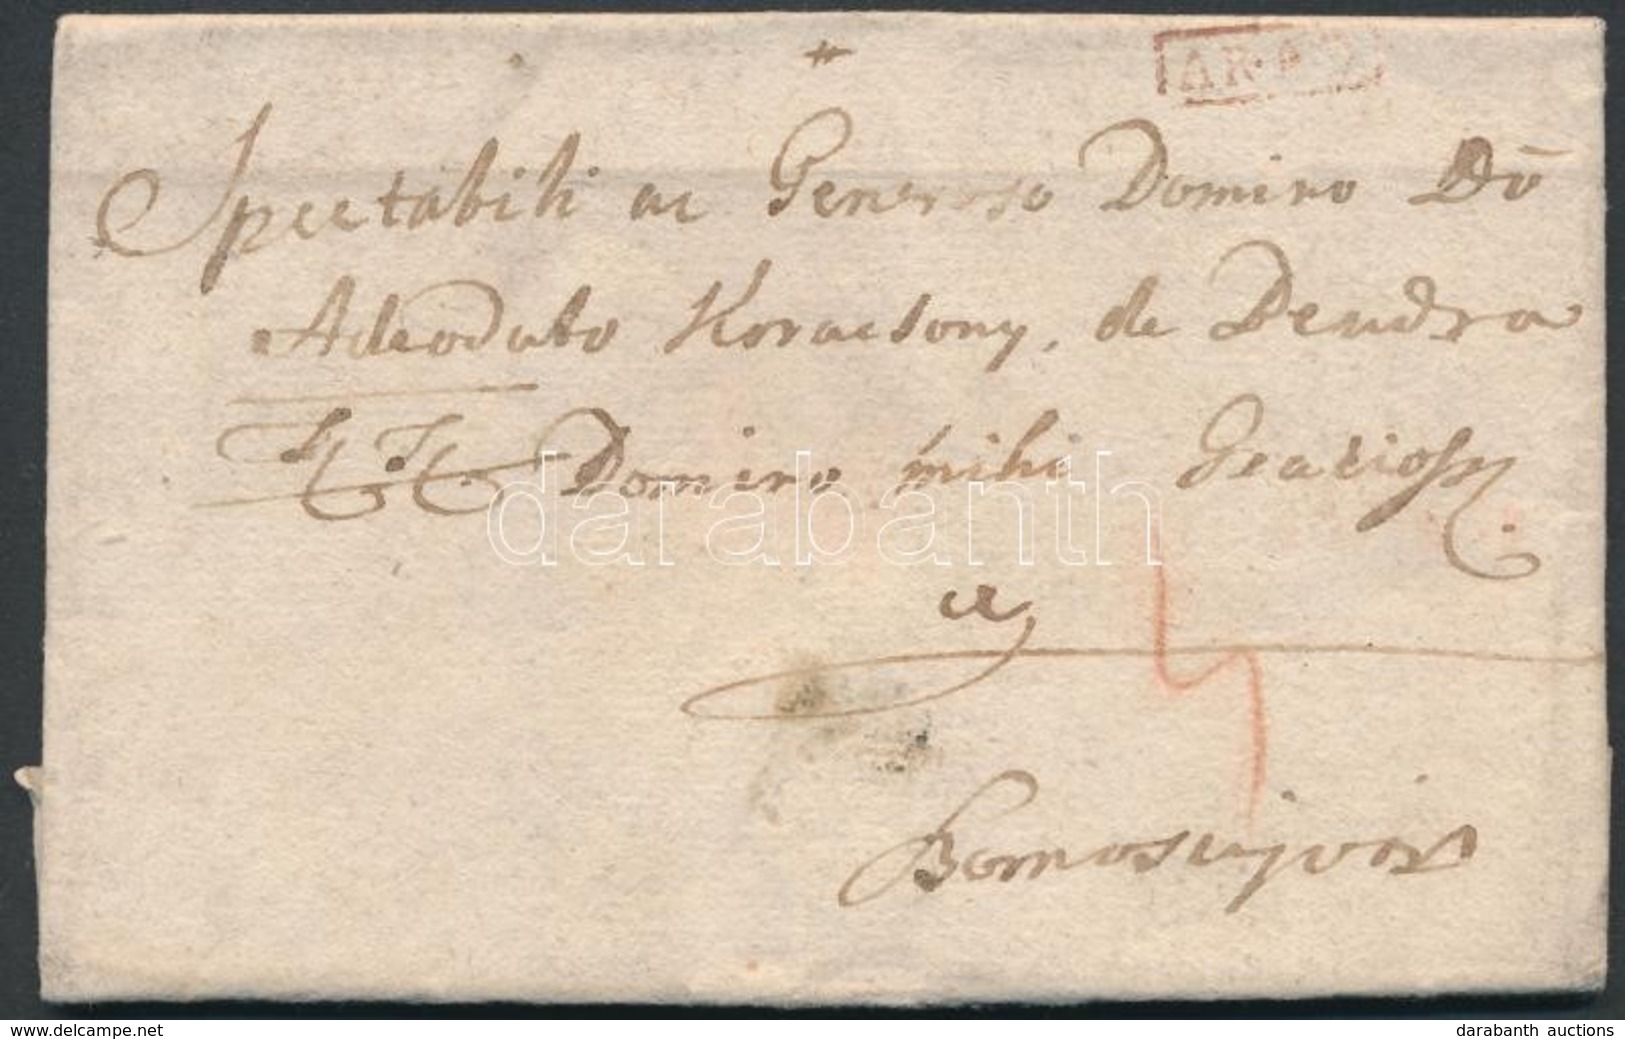 ARAD
Spectabili ac Generoso Domino Dō
Adeodato Kovacsony, de Dendra
Domino mihi Gratioss
a
darabanth
Boros
www.delcampe.net
darabanth auctions